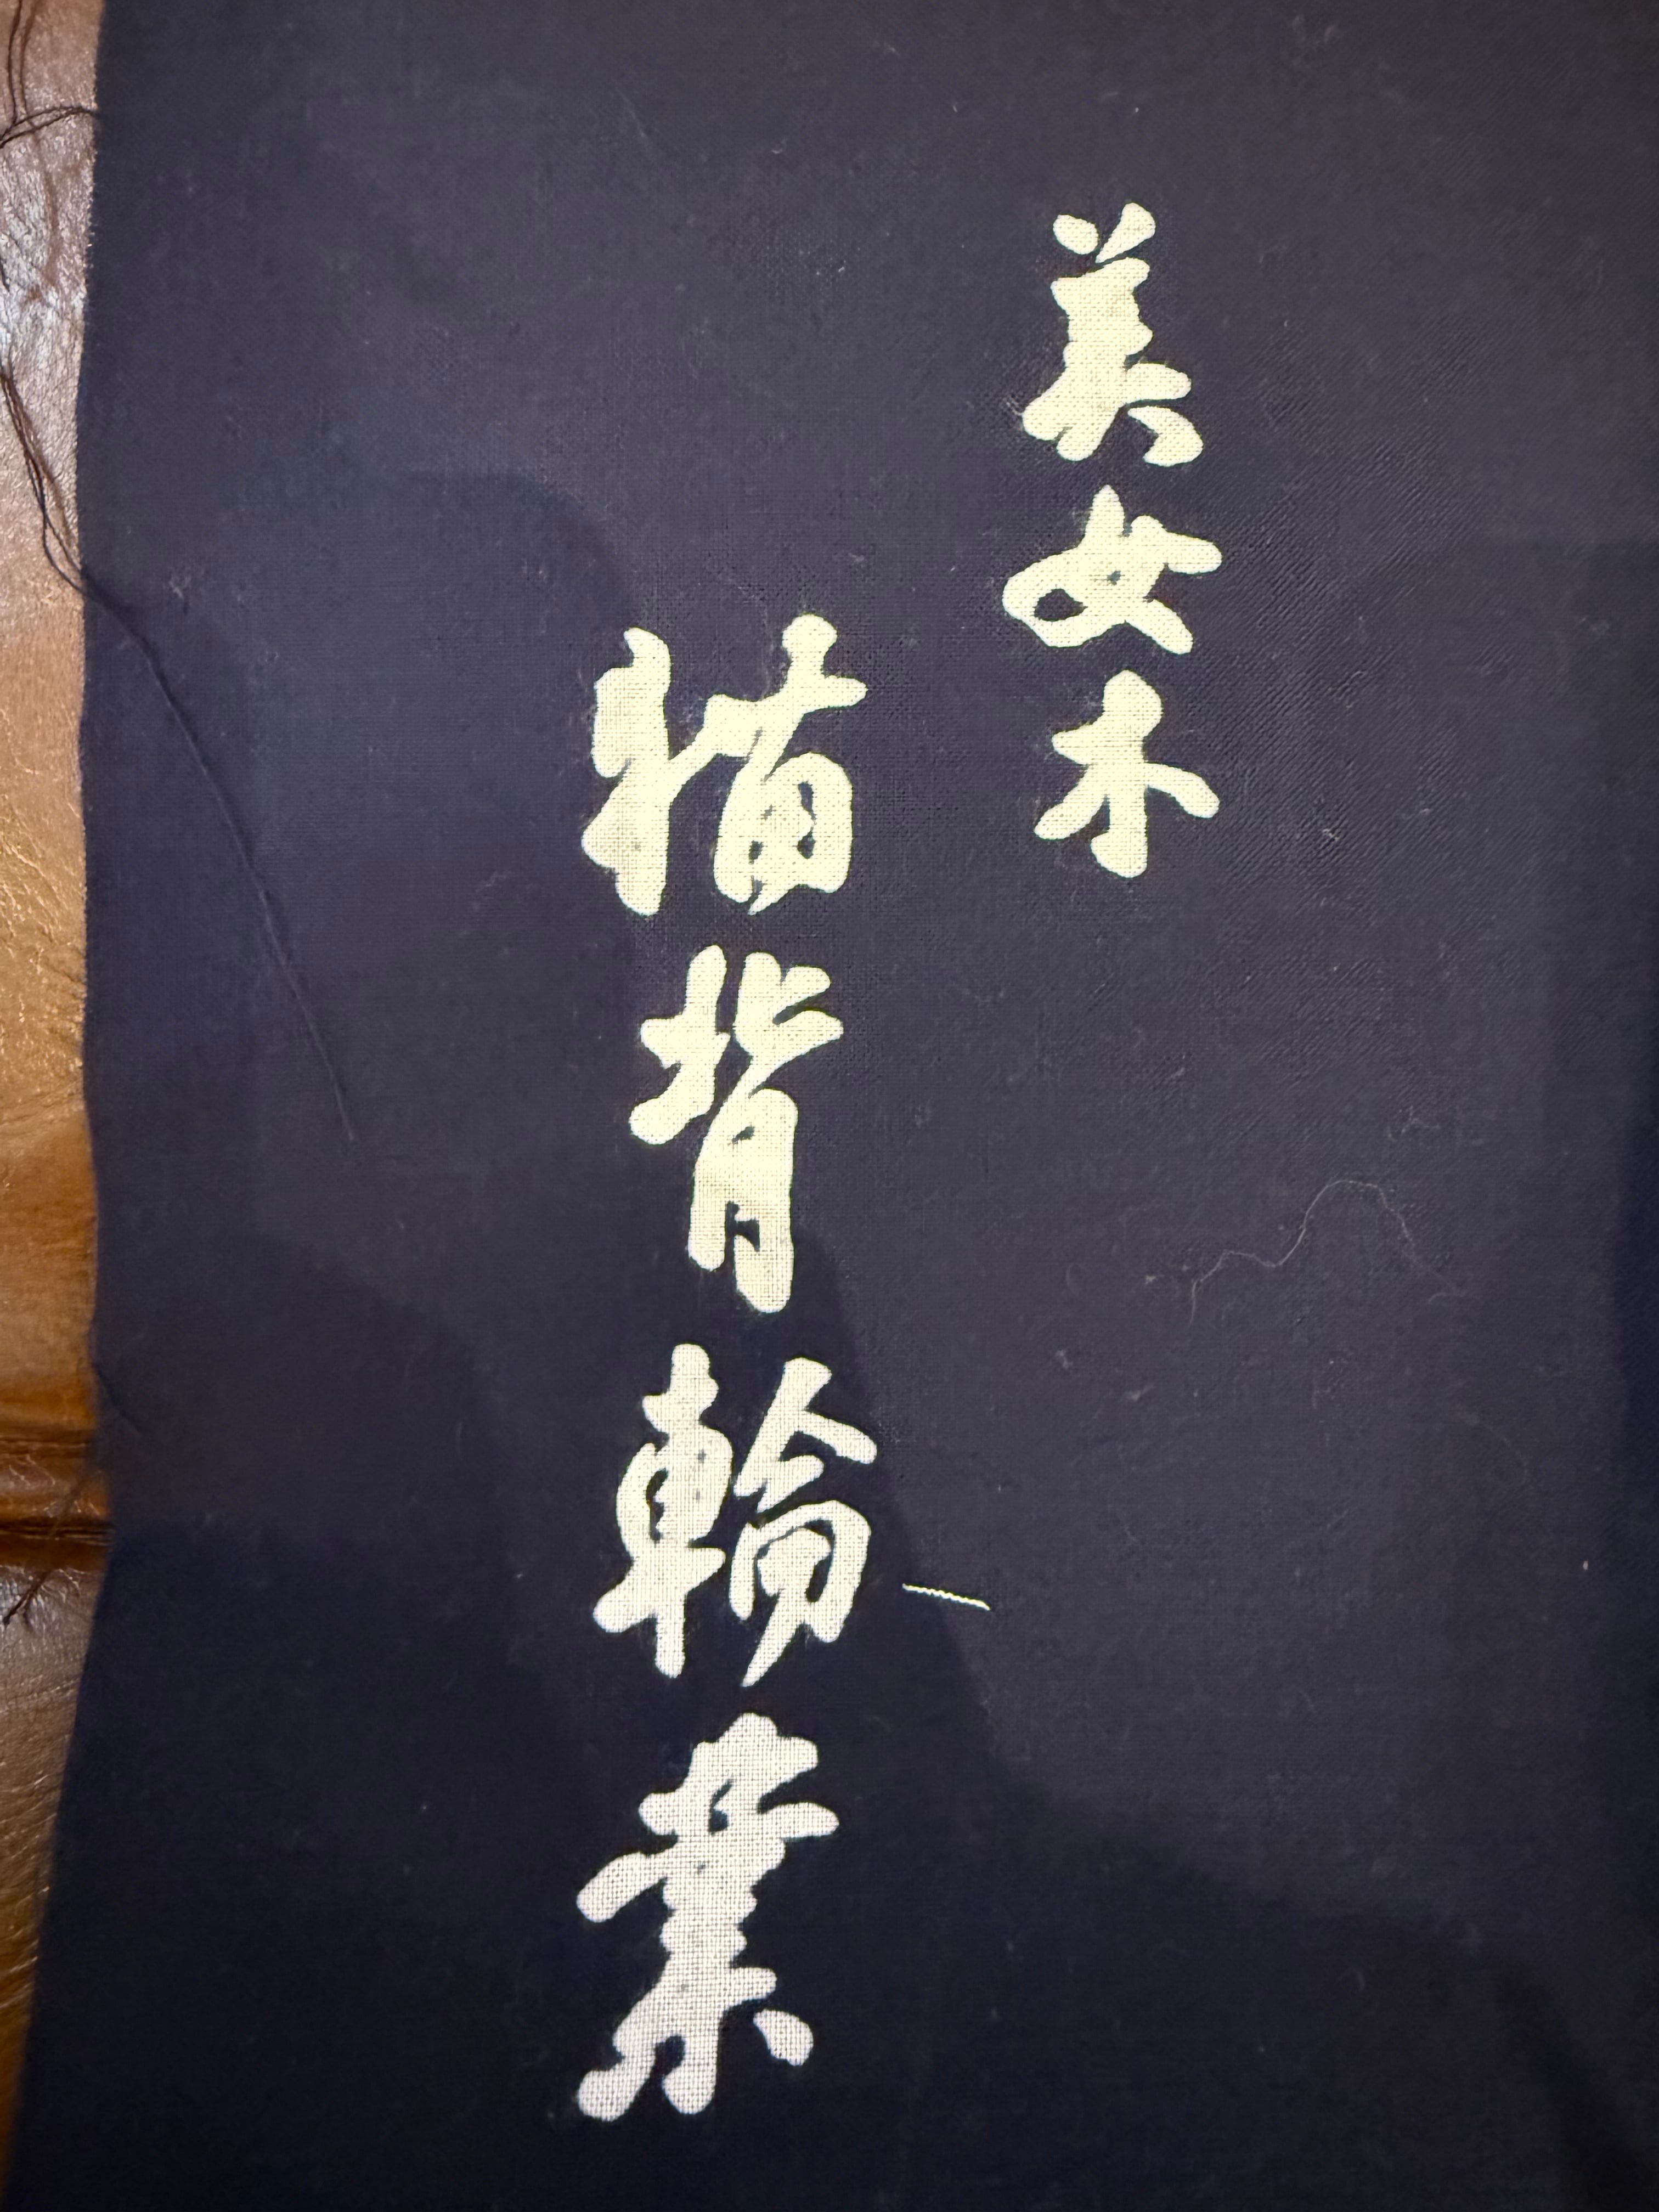 美女木
猫背輪業